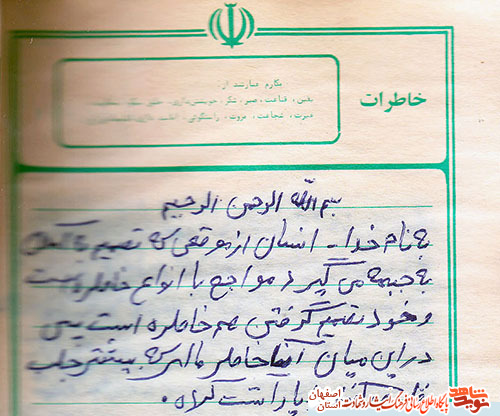 خاطرات
مکارم عبارتند از:
یقین، قناعت، صبر، شکر، خویشتن‌داری، خلق نیکو، سخاوت،
غیرت، شجاعت، مروت، راستگویی،
بسم الله الرحمن الرحیم
به نام خدا - انسان از موقعی که تصمیم به
به جبهه می گیرد مواجع با انواع خاطره است
و خود تصمیم گرفتن هم خاطره است پس
در این میان آنها خاطر ها ای که بیشتر جلب
یاداشت کرده.
نوید شاهد
پایگاه اطلاع رسانی فرهنگ ایثار و شهادت استان اصفهان